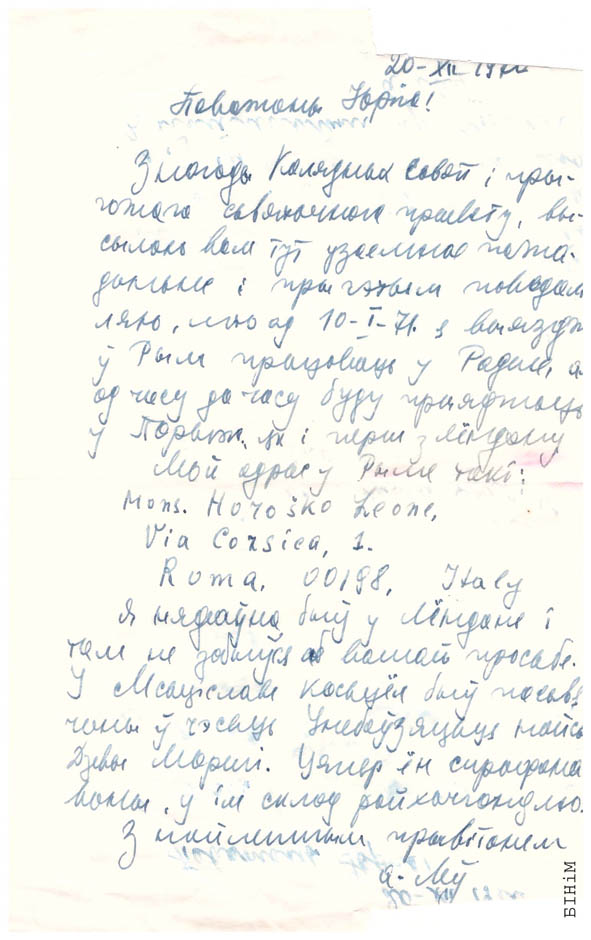 20-XII 197
Паважаны Юрка!
З нагоды Калядных сьвят і пры-
гожага сьвяточнага прывету, вы-
сылаю вам тут узаемнае пажа-
даньне і пры гэтым паведам
ляю, што ад 10-I-71. я выязджа
ў Рым працаваць у Радыё, а
ад часу да часу буду прыяжджаць
у Парыж, як і перш з Лёндану
Мой адрас у Рыме такі:
Mons. Horoško Leone,
Via Corsica, 1.
Roma, 00198, Italy
Я нядаўна быў у Лёндане і
там не забыўся аб вашай просьбе.
У Мсьціславе касьцёл быў пасьвя
чаны ў чэсьць Унебаўзяцьця найсь
Дзевы Марыі. Цяпер ён спрафана
ваны, у ім склад райхарчгандлю.
З найлепшым прывітаньнем
а. Л
20-XII
БІНіМ